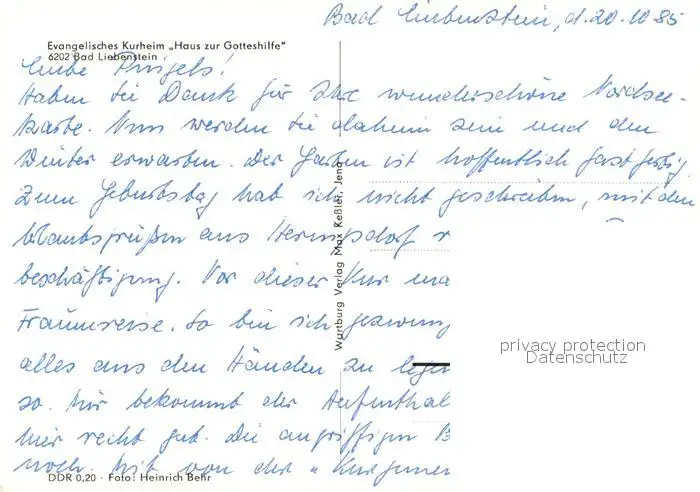 Bad Liebenstein, d. 20.10.85
Evangelisches Kurheim „Haus zur Gotteshilfe"
6202 Bad Liebenstein
Liebe
Haben Sie Dank für Ihre wunderschöne Nordsee-
karte. Nun werden Sie daheim sein und den
Winter erwarten. Der Garten ist hoffentlich fast fertig.
Zum Geburtstag hab ich nicht geschrieben, mit den
Urlaubsgrüßen aus Hermsdorf
beschäftigung. Vor dieser Kur
Traumreise. So bin ich
alles aus den Händen zu legen
so. Mir bekommt der
hier recht gut. Die angriffigen B
noch. Mit von der
Wartburg Verlag Max Keßler, Jena
privacy protection
Datenschutz
DDR 0,20 · Foto: Heinrich Behr